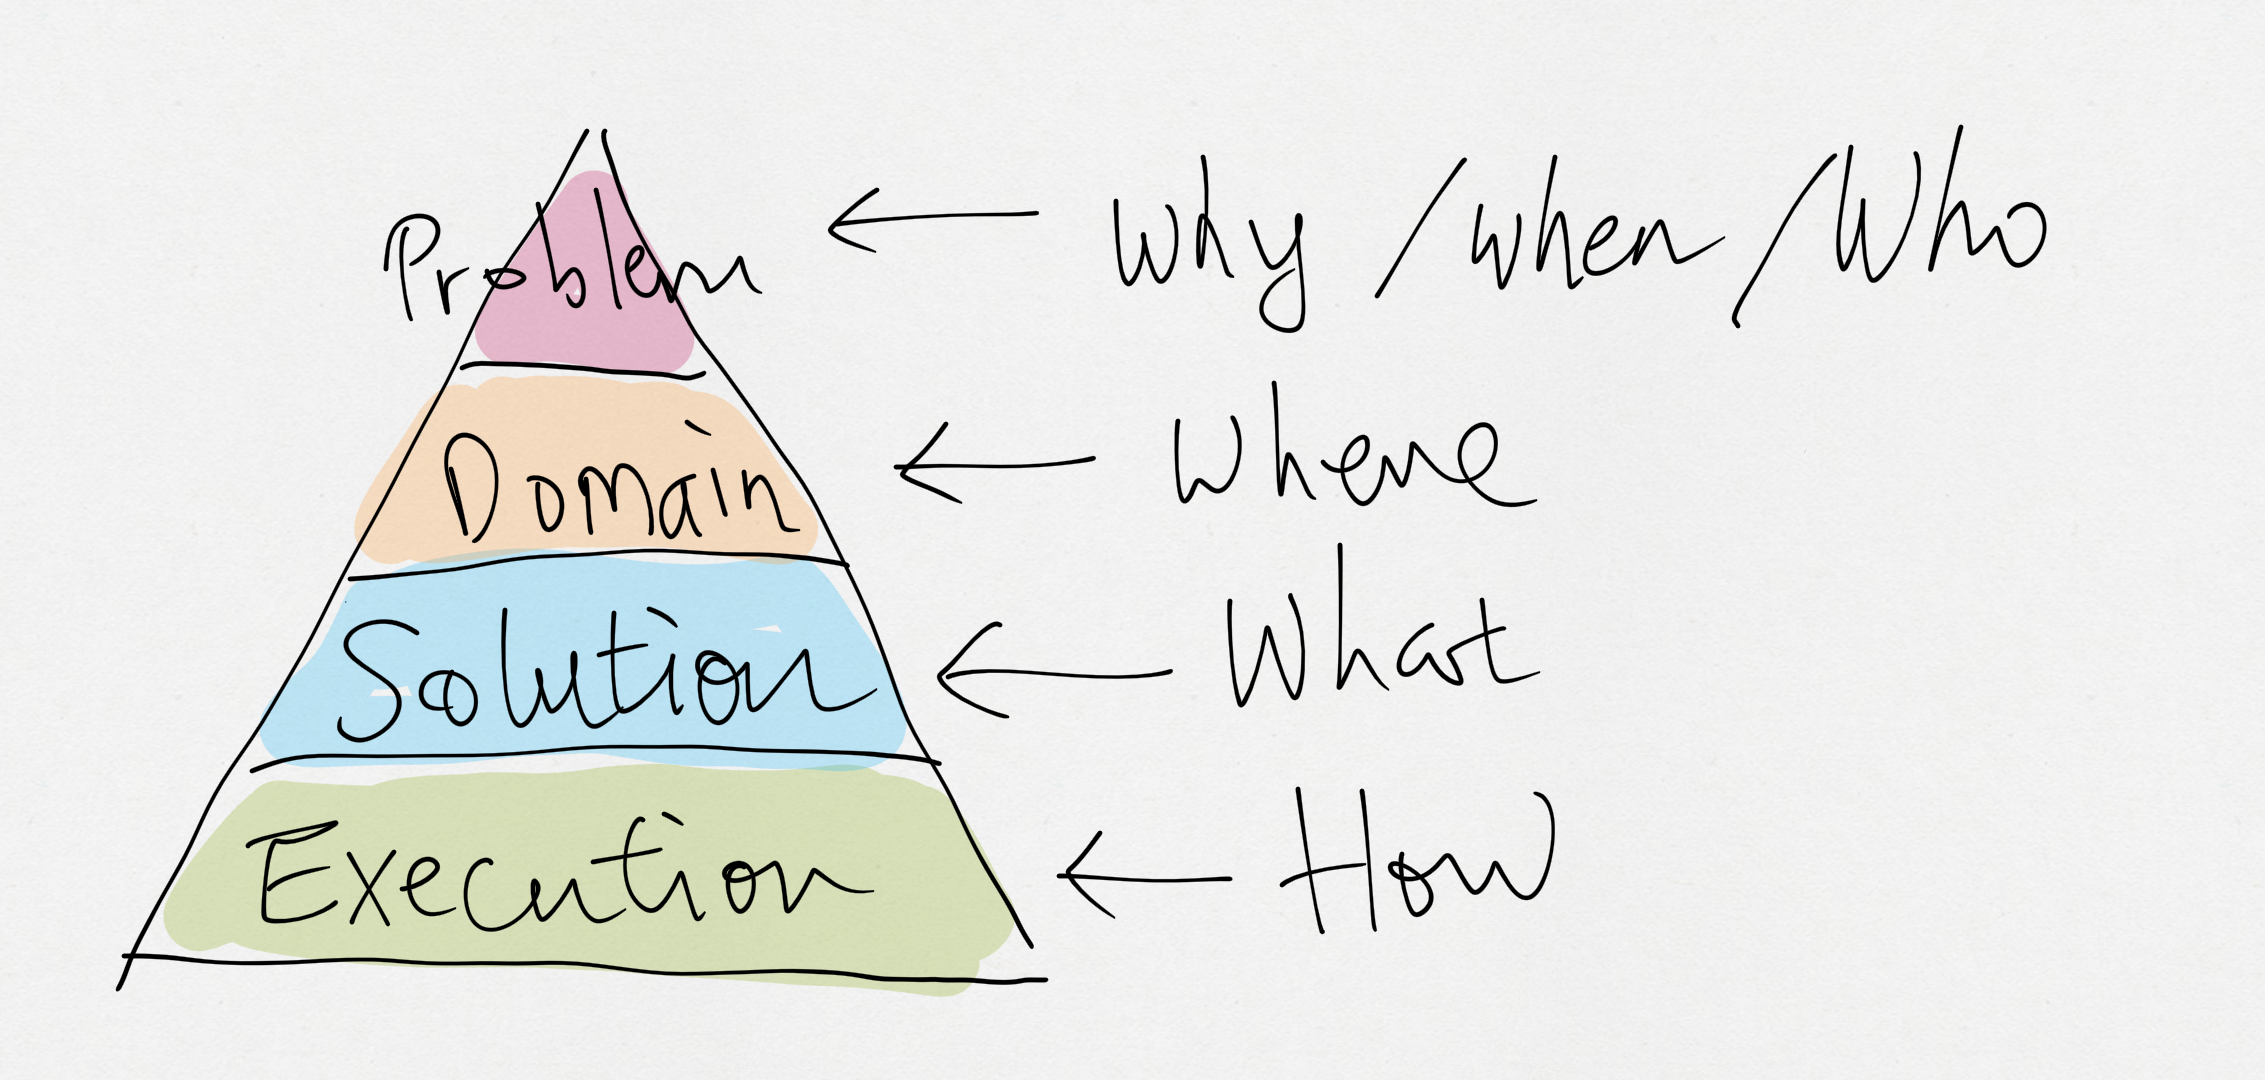 Problem
Why / when / Who
Domain
Where
Solution
What
Execution
How